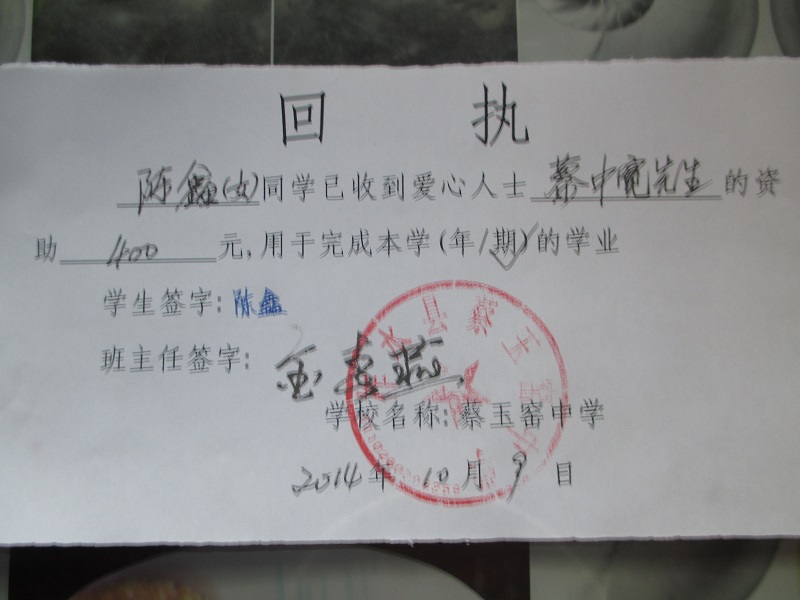 回执
陈鑫(女)同学已收到爱心人士 蔡中宽先生 的资
助 400 元,用于完成本学(年/期)的学业
学生签字:陈鑫
班主任签字:金春燕
学校名称:蔡玉窑中学
2014年10月9日